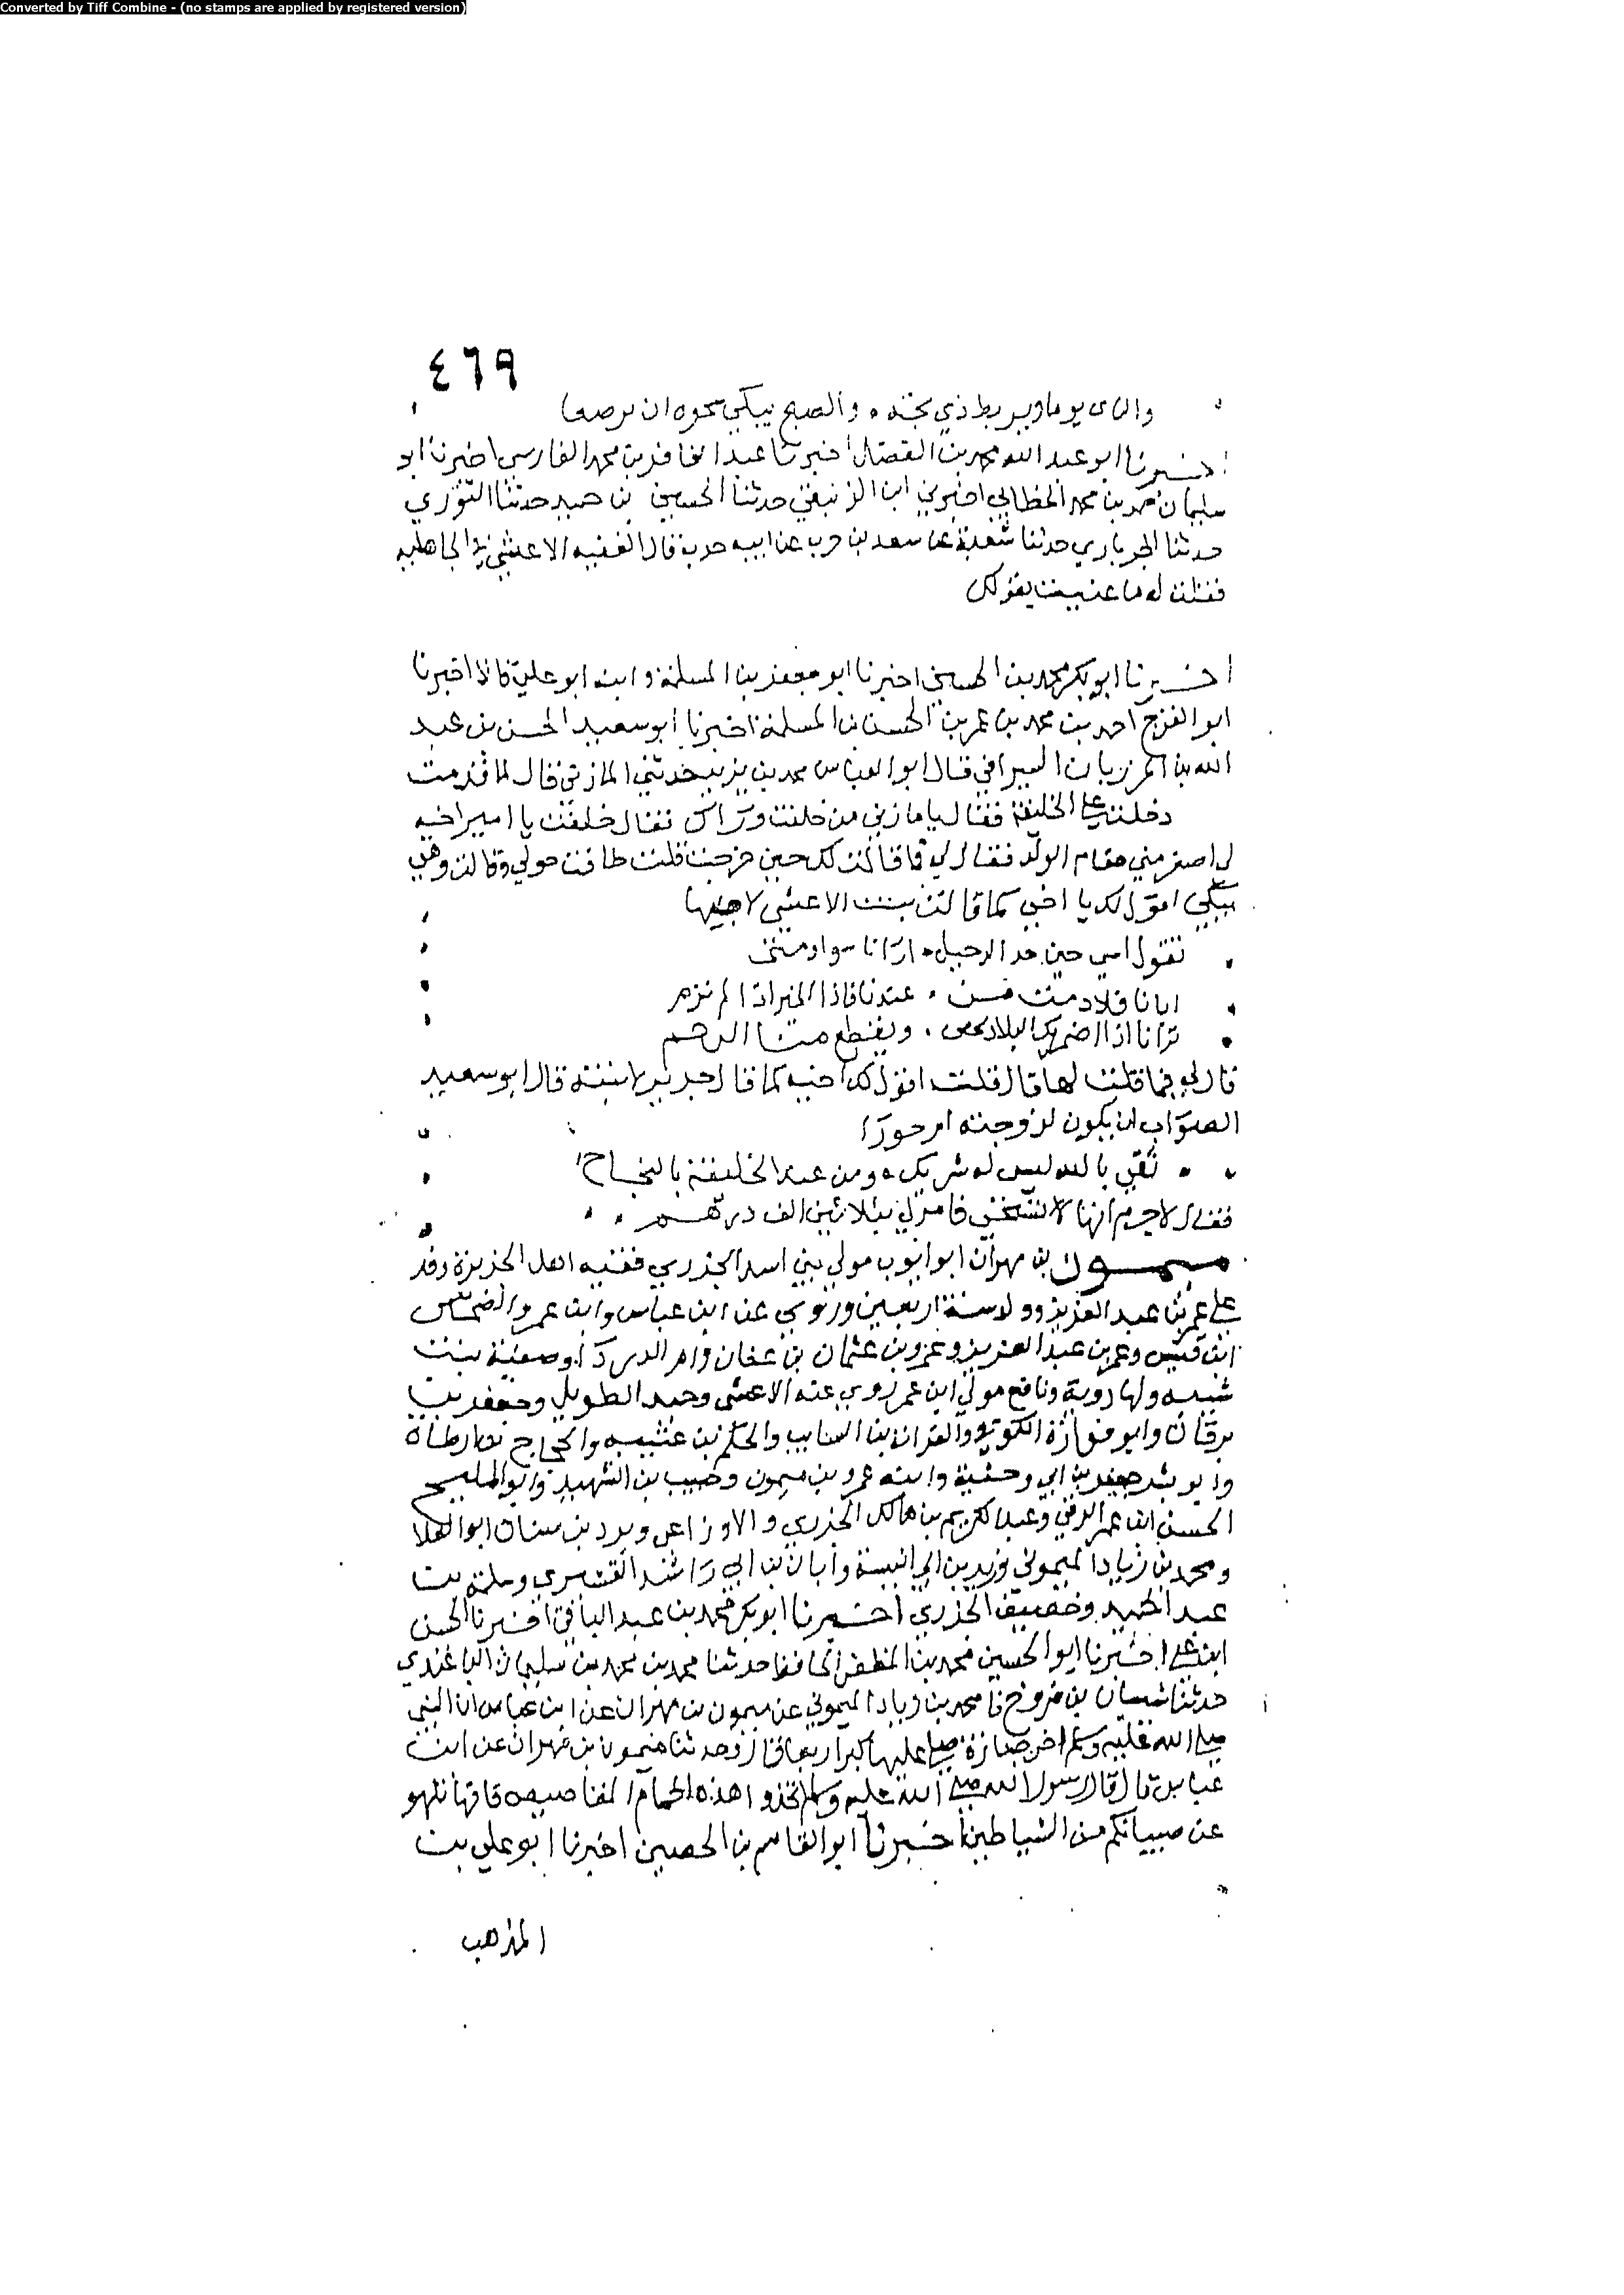 Converted by Tiff Combine - (no stamps are applied by registered version)
٤٦٩
اخبرنا ابو عبد الله محمد بن الفضل اخبرنا عبد الغافر بن محمد الفارسي اخبرنا ابو
سليمان حمد بن محمد الخطابي اخبرني ابن الزنبقي حدثنا الحسين بن حميد حدثنا التوزي
حدثنا حدثنا شعبة عن بن حرب عن ابيه قال لقيه الاعشى في الجاهليه
فقلت له ما عنيت بقولك
اخبرنا ابو بكر محمد بن الحسين اخبرنا ابو جعفر بن المسلمة وابنه ابو علي قالا اخبرنا
ابو الفرج احمد بن محمد بن عمر بن الحسن بن المسلمة اخبرنا ابو سعيد الحسن بن عبد
الله بن المرزبان السيرافي قال ابو العباس محمد بن يزيد حدثني المازني قال لما قدمت
دخلت على الخليفة فقال يا مازني من خلفت وراك فقال خلفت يا امير اخيه
لي اصغر مني مقام الولد فقال لي فما قالت لك حين خرجت قلت طافت حولي وقالت وهي
تبكي اقول لك يا اخي كما قالت بنت الاعشى لابيها
تقول ابنتي حين جد الرحيل ارانا سوا ومن
ابانا فلا رمت من عندنا فانا بخير اذا لم ترم
ترانا اذا اضمرتك البلاد ويقطع منا الرحم
قال لي فما قلت لها قال قلت اقول لك اخيه كما قال جرير لابنته قال ابو سعيد
الصواب ان يكون لزوجته ام حزرا
ثقي بالله ليس له شريك ومن عند الخليفة بالنجاح
فقال لا جرم انها فامر لي بثلاثين الف درهم
ميمون بن مهران ابو ايوب مولي بني اسد الجزري فقيه اهل الجزيرة وفد
علي عمر بن عبد العزيز وولا سنة اربعين وروي عن ابن عباس وابن عمر والضحاك
ابن قيس وعمر بن عبد العزيز وعمرو بن عثمان بن عفان وام الدردا وصفية بنت
شيبه ولها رويه ونافع مولي ابن عمر روي عنه الاعمش وحميد الطويل وجعفر بن
برقان وابو فزارة الكوفي والفرات بن السايب والحكم بن عتيبه والحجاج بن ارطاه
وابو بشر جعفر بن ابي وحشية وابنه عمرو بن ميمون وحبيب بن الشهيد وابو المليح
الحسن ابن عمر الرقي وعبد الكريم بن مالك الجزري والاوزاعي وبرد بن سنان ابو العلا
ومحمد بن زياد الميموني وزيد بن ابي انيسة وابان بن ابي راشد القشيري وسلمة بن
عبد الحميد وخصيف الجزري اخبرنا ابو بكر محمد بن عبد الباقي اخبرنا الحسن
ابن علي اخبرنا ابو الحسين محمد بن المظفر الحافظ حدثنا محمد بن محمد بن سليمان الباغندي
حدثنا شيبان بن فروخ نا محمد بن زياد الميموني عن ميمون بن مهران عن ابن عباس ان النبي
صلى الله عليه وسلم اخر جنازة صلى عليها كبر اربعا قال وحدثنا ميمون بن مهران عن ابن
عباس قال قال رسول الله صلى الله عليه وسلم اتخذوا هذه الحمام المقاصيص فانها تلهو
عن صبيانكم من الشياطين اخبرنا ابو القاسم بن الحصين اخبرنا ابو علي بن
المذهب